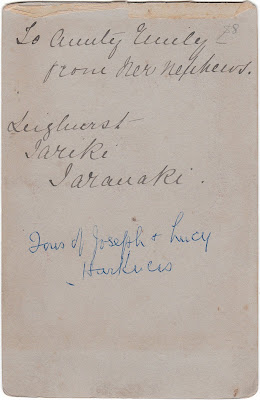 78
To Aunty Emily
from Her Nephews.
Leighurst
Tariki
Taranaki.
Sons of Joseph + Lucy
Harkness